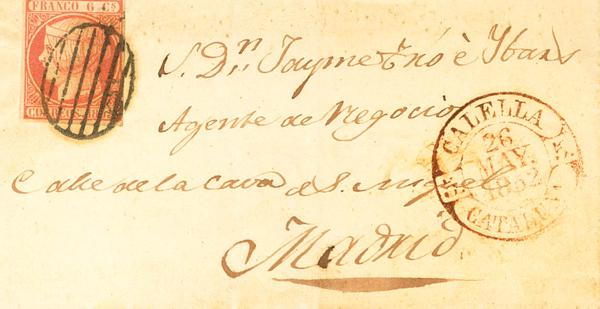 FRANCO 6 CS
CORREOS 1852
S. Dn. Jayme Tró è Ybars
Agente de Negocios
Calle de la Cava de S. Miguel
Madrid
CALELLA
26
MAY.
1852
CATALUÑA